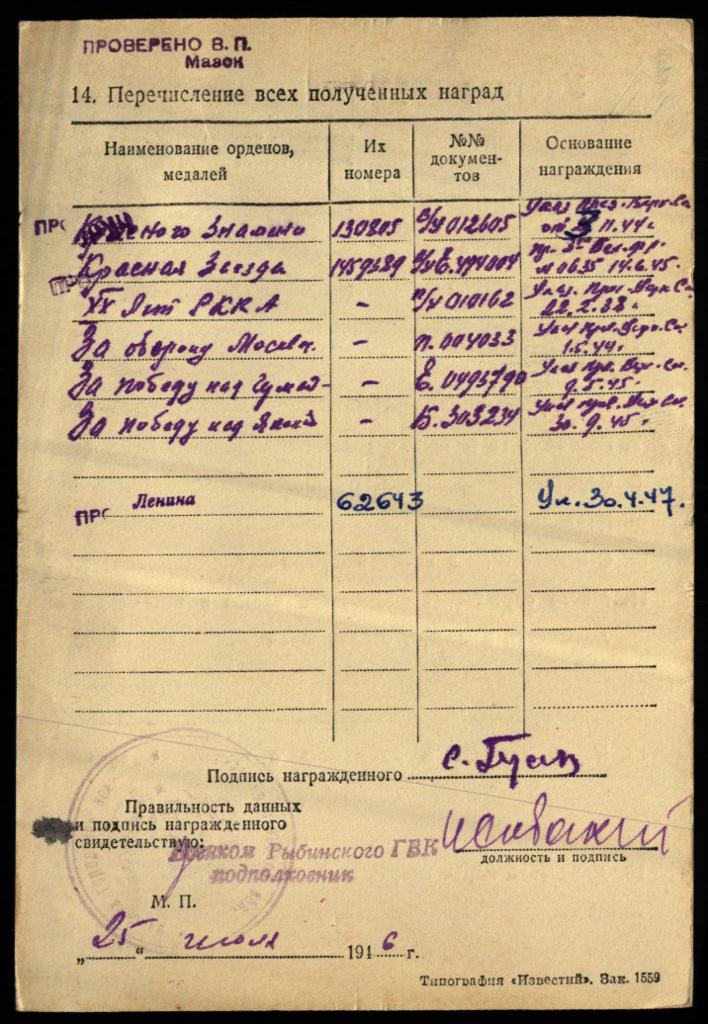 ПРОВЕРЕНО В. П.
Мазок
14. Перечисление всех полученных наград
Наименование орденов, медалей Их номера №№ документов Основание награждения
ПРО Красного Знамени 130805 012605 Указ През. Верх. Со. от 3 11.44 г.
ПРО Красная Звезда 1459389 Пр. № 0635 14.6.45.
XX Лет РККА - 010162 Указ. През. Верх. Со. 22.2.38 г.
За оборону Москвы - П. 004033 Указ През. Верх. Со. 1.5.44 г.
За победу над Герман - Е. 0495790 Указ Пр. Вер. Со. 9.5.45 г.
За победу над Японией - Б. 303234 Указ През. Вер. Со. 30.9.45 г.
ПРО Ленина 62643 Ук. 30.4.47.
Подпись награжденного
Правильность данных
и подпись награжденного
свидетельствую:
Военком Рыбинского ГВК
подполковник
должность и подпись
М. П.
„25“ июля 1946 г.
Типография «Известий». Зак. 1559